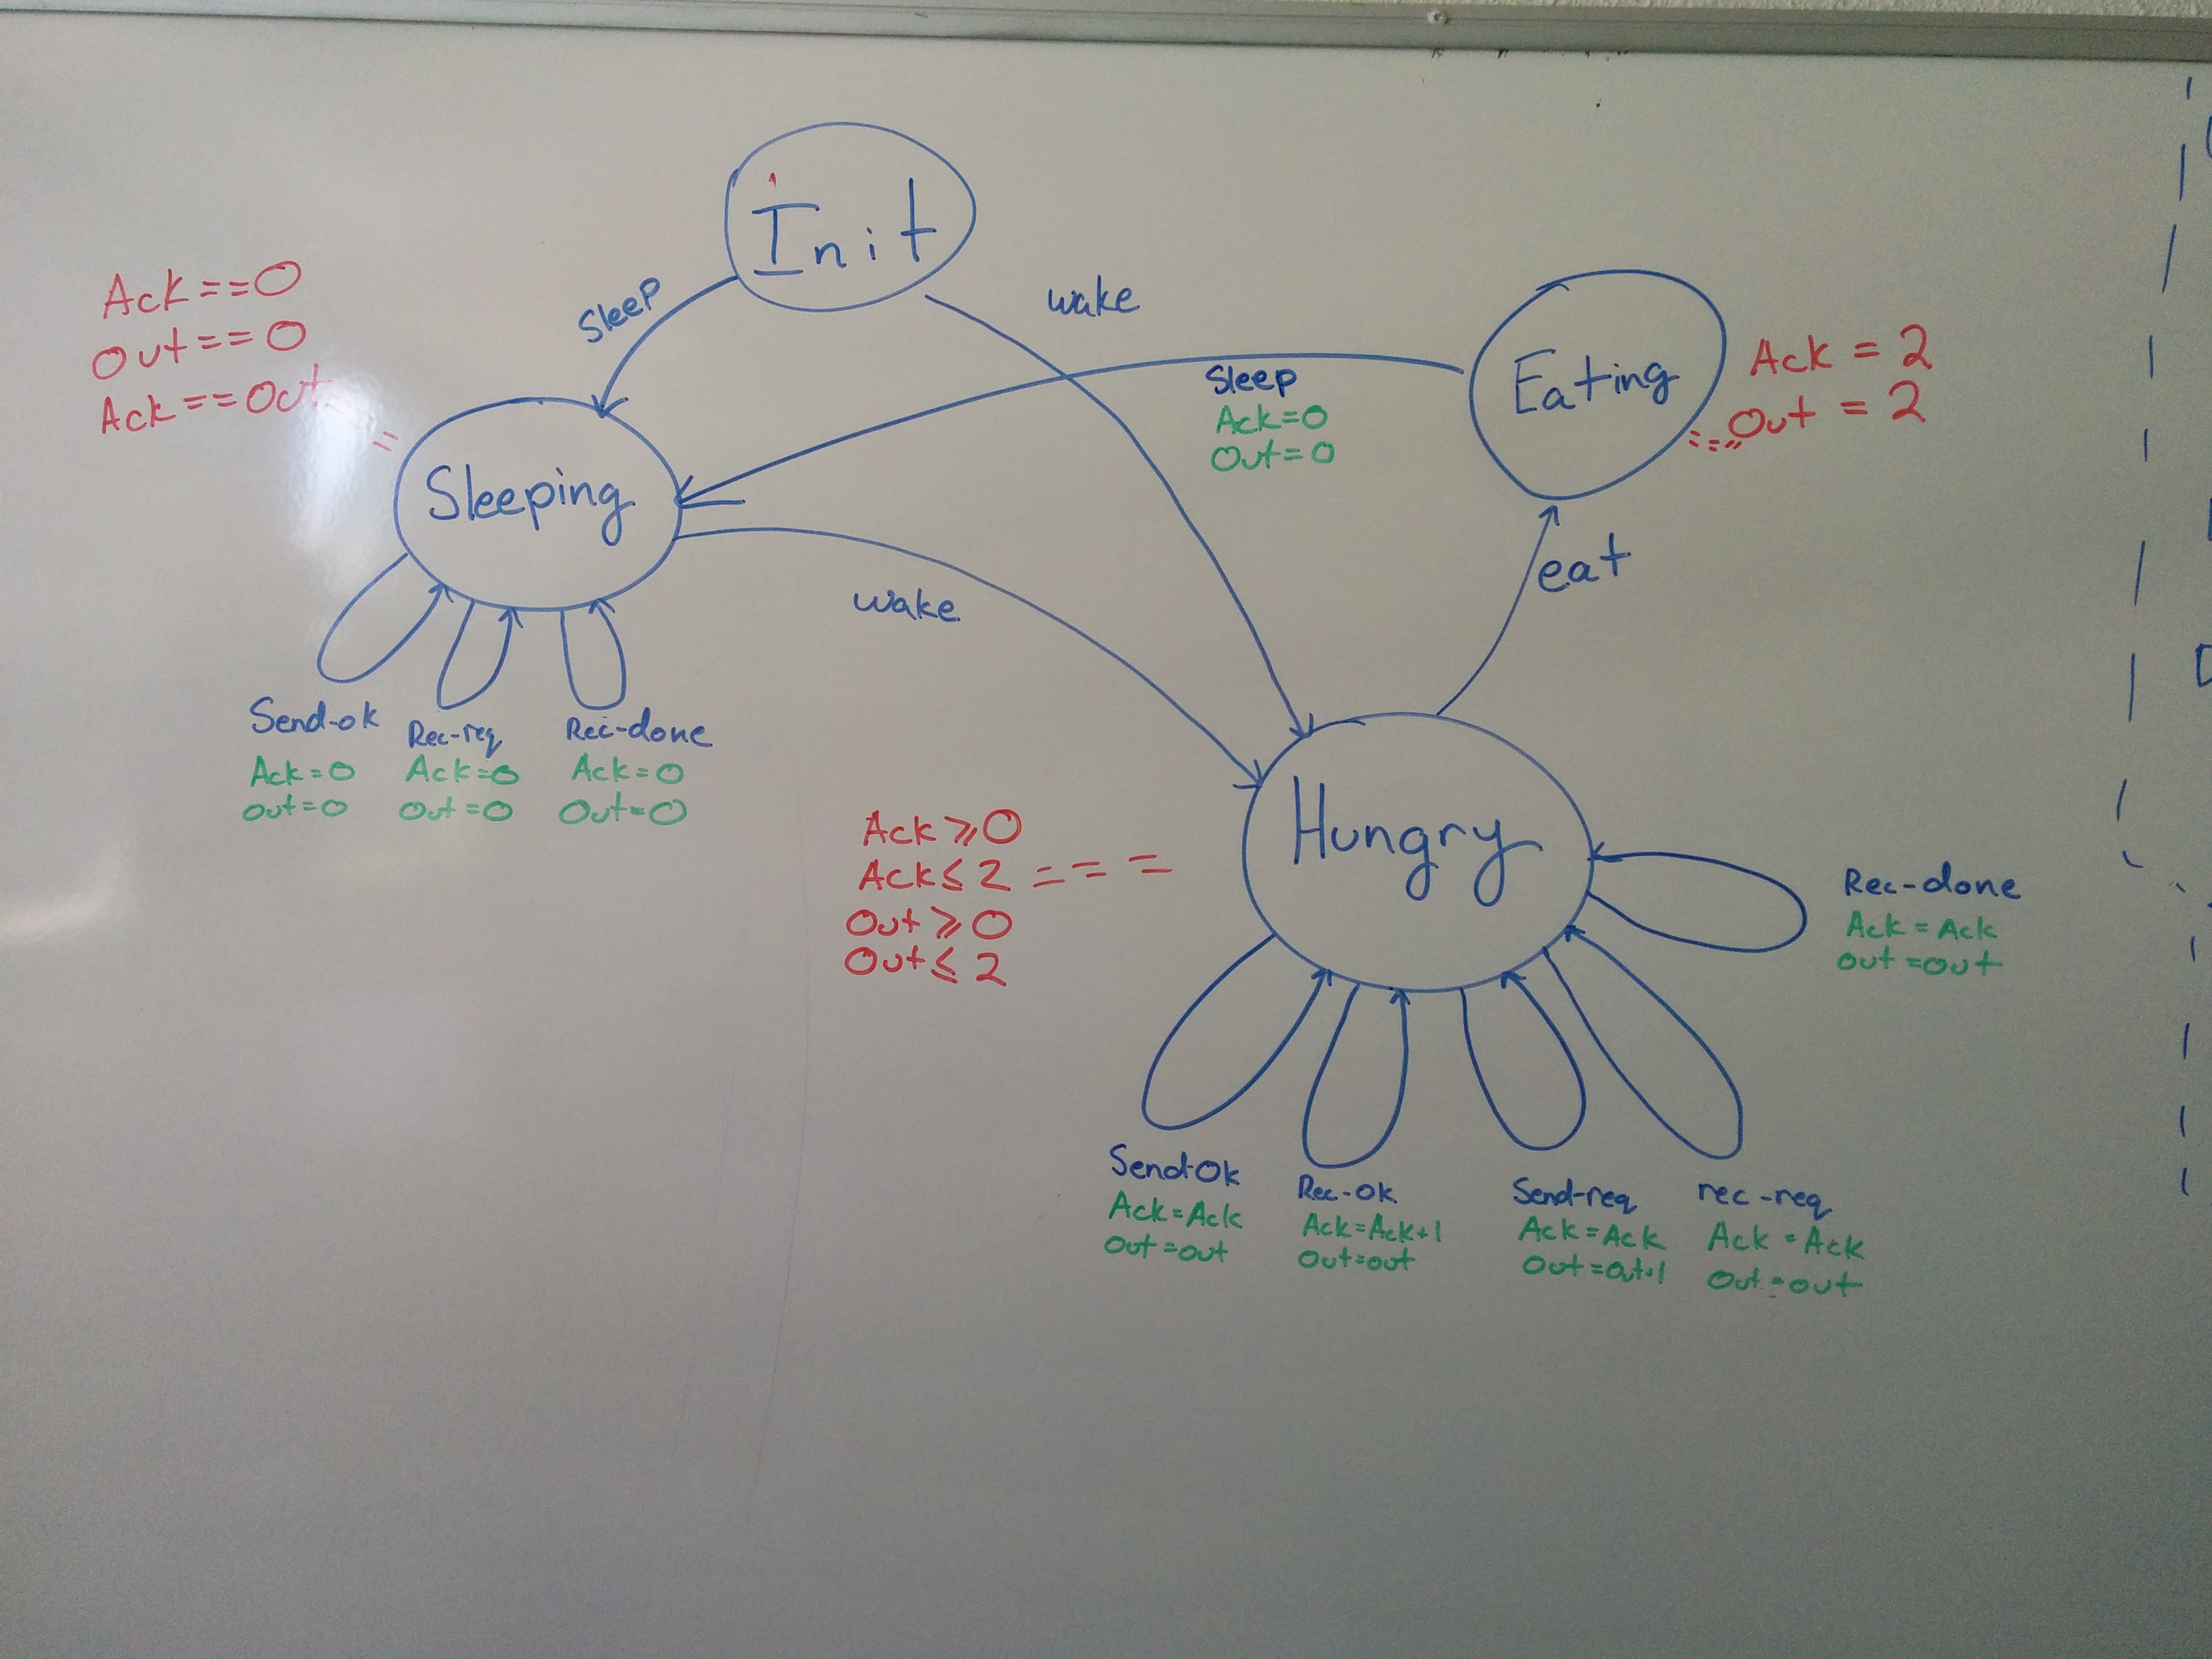 Init
Sleep
wake
Ack==0
Out==0
Ack==Out
Sleep
Ack=0
Out=0
Eating
Ack = 2
Out = 2
Sleeping
eat
wake
Send-ok
Ack=0
out=0
Rec-req
Ack=0
Out=0
Rec-done
Ack=0
Out=0
Ack≥0
Ack≤2
Out≥0
Out≤2
Hungry
Rec-done
Ack=Ack
out=out
Send-Ok
Ack=Ack
Out=out
Rec-ok
Ack=Ack+1
Out=out
Send-req
Ack=Ack
Out=out+1
rec-req
Ack=Ack
Out=out